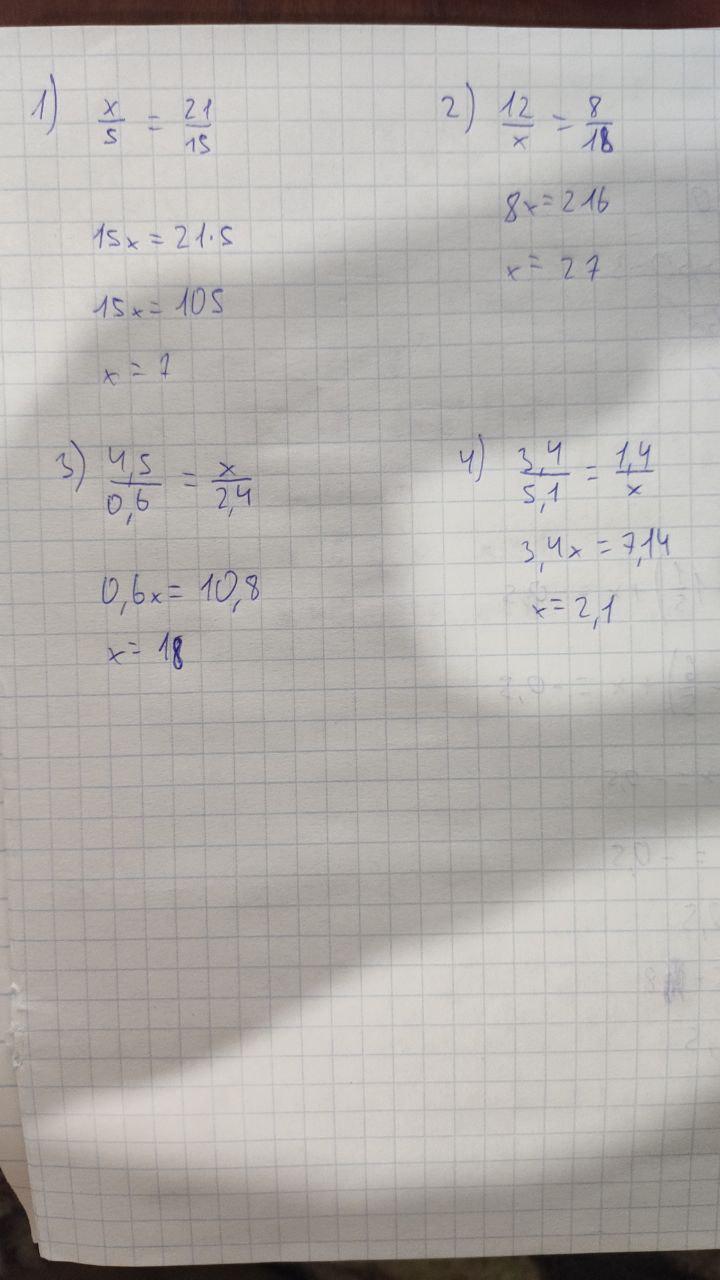 1) x/5 = 21/15
15x = 21·5
15x = 105
x = 7
2) 12/x = 8/18
8x = 216
x = 27
3) 4,5/0,6 = x/2,4
0,6x = 10,8
x = 18
4) 3,4/5,1 = 1,4/x
3,4x = 7,14
x = 2,1